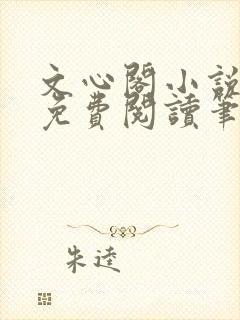 文心閣小說
免費閱讀筆
朱逵